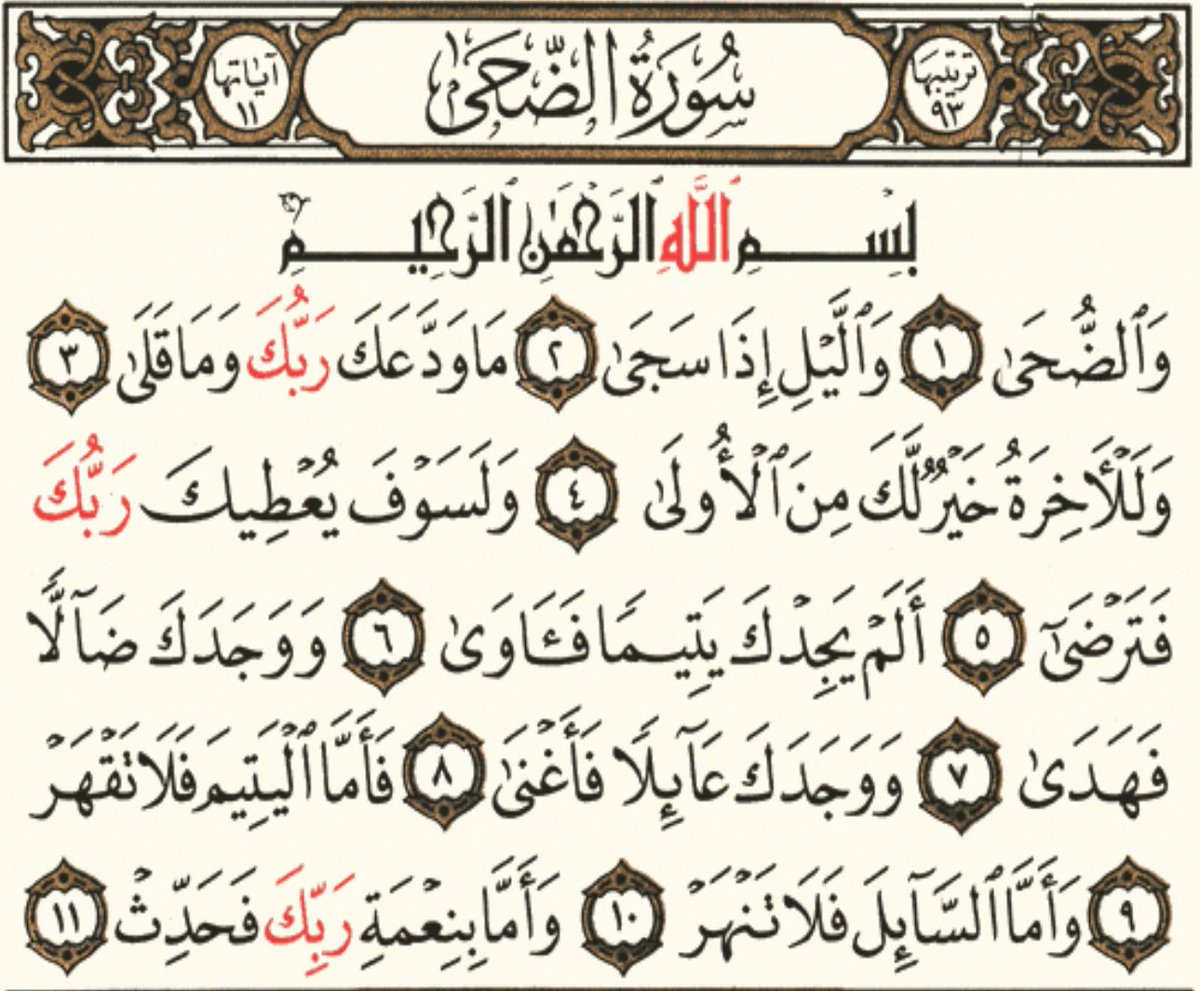 ترتيبها ٩٣ سُورَةُ الضُّحَىٰ آياتها ١١
بِسْمِ ٱللَّهِ ٱلرَّحْمَٰنِ ٱلرَّحِيمِ
وَٱلضُّحَىٰ ١ وَٱلَّيْلِ إِذَا سَجَىٰ ٢ مَا وَدَّعَكَ رَبُّكَ وَمَا قَلَىٰ ٣
وَلَلْـَٔاخِرَةُ خَيْرٌ لَّكَ مِنَ ٱلْأُولَىٰ ٤ وَلَسَوْفَ يُعْطِيكَ رَبُّكَ
فَتَرْضَىٰٓ ٥ أَلَمْ يَجِدْكَ يَتِيمًا فَـَٔاوَىٰ ٦ وَوَجَدَكَ ضَآلًّا
فَهَدَىٰ ٧ وَوَجَدَكَ عَآئِلًا فَأَغْنَىٰ ٨ فَأَمَّا ٱلْيَتِيمَ فَلَا تَقْهَرْ
٩ وَأَمَّا ٱلسَّآئِلَ فَلَا تَنْهَرْ ١٠ وَأَمَّا بِنِعْمَةِ رَبِّكَ فَحَدِّثْ ١١